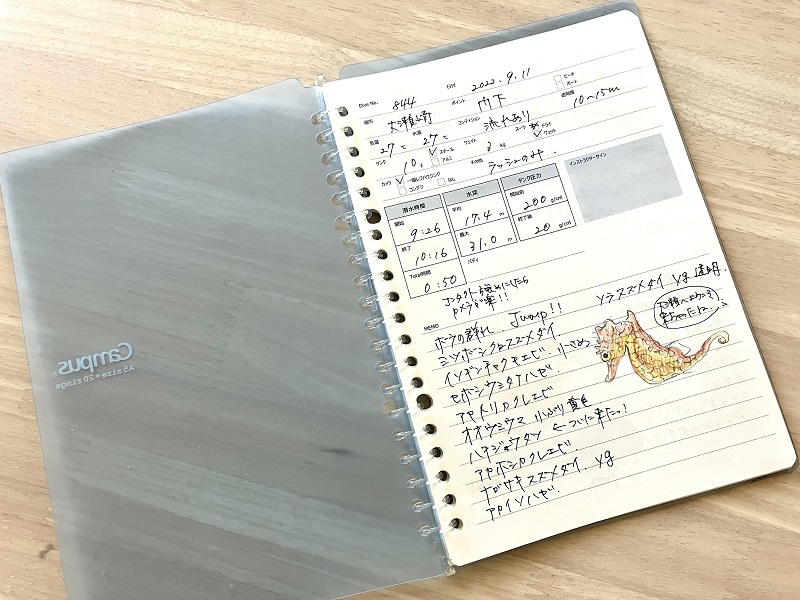 Campus
A5 size * 20 rings
Dive No. 844 日付 2022.9.11
場所 大瀬崎 ポイント 門下 ビーチ ボート
気温 27℃ 水温 27℃ コンディション 流れあり 透明度 10〜15m
タンク 10 スチール アルミ ウェイト 3 kg スーツ ドライ ウェット
カメラ 一眼レフハウジング コンデジ なし その他 ラッシュのみ.
潜水時間 水深 タンク圧力 インストラクターサイン
開始 9:26 平均 17.4 m 開始前 200 g/cm²
終了 10:16 最大 31.0 m 終了後 20 g/cm²
Total時間 0:50 バディ
コンタクト
カメラも楽!!
ソラスズメダイ yg 透明.
MEMO
ボラの群れ Jump!!
ミツボシクロスズメダイ
イソギンチャクモエビ 小さめ
セボシウミタケハゼ
アヤメリクレエビ
オオウミウマ 小ぶり 黄色
ハナジョウダツ ←ついに来たっ!
アヤホシクレエビ
ナガサキスズメダイ yg
アカイソハゼ.